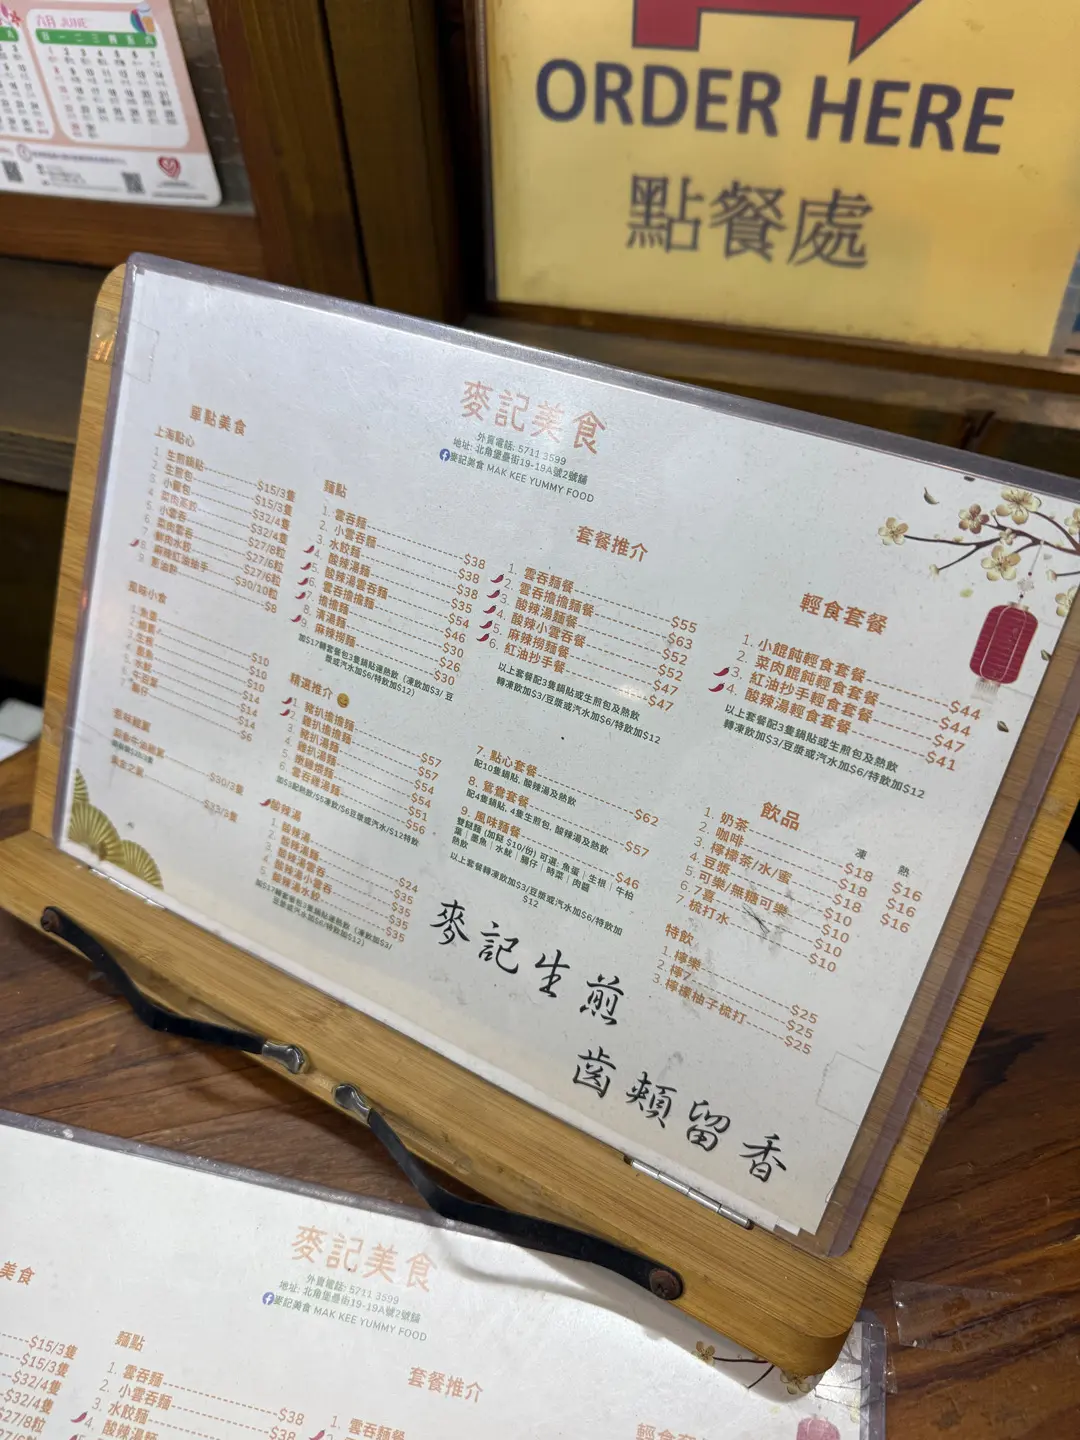 六月 JUNE
日 一 二 三 四 五 六
ORDER HERE
點餐處
麥記美食
外賣電話: 5711 3599
地址: 北角堡壘街19-19A號2號舖
麥記美食 MAK KEE YUMMY FOOD
單點美食
上海點心
1. 生煎鍋貼 $15/3隻
2. 生煎包 $15/3隻
3. 小籠包 $32/4隻
4. 菜肉蒸餃 $32/4隻
5. 小雲吞 $27/8粒
6. 菜肉雲吞 $27/6粒
7. 鮮肉水餃 $27/6粒
8. 麻辣紅油抄手 $30/10粒
9. 蔥油餅 $8
風味小食
1. 魚蛋 $10
$10
3. 生根 $10
4. 墨魚 $14
5. 水魷 $14
6. 牛柏葉 $14
7. 腸仔 $6
$30/3隻
$33/3隻
麵點
1. 雲吞麵 $38
2. 小雲吞麵 $38
3. 水餃麵 $38
4. 酸辣湯麵 $35
5. 酸辣湯雲吞麵 $54
6. 雲吞擔擔麵 $46
7. 擔擔麵 $30
8. 清湯麵 $26
9. 麻辣撈麵 $30
加$17轉套餐包3隻鍋貼連熱飲 (凍飲加$3/ 豆
漿或汽水加$6/特飲加$12)
精選推介
1. 豬扒擔擔麵 $57
2. 雞扒擔擔麵 $57
3. 豬扒湯麵 $54
4. 雞扒湯麵 $54
$51
6. 雲吞雞湯麵 $56
加$3配熱飲/$5凍飲/$6豆漿或汽水/$12特飲
酸辣湯
1. 酸辣湯 $24
2. 酸辣湯麵 $35
3. 酸辣湯雲吞 $35
4. 酸辣湯小雲吞 $35
5. 酸辣湯水餃 $35
加$17轉套餐包3隻鍋貼連熱飲 (凍飲加$3/
豆漿或汽水加$6/特飲加$12)
套餐推介
1. 雲吞麵餐 $55
2. 雲吞擔擔麵餐 $63
3. 酸辣湯麵餐 $52
4. 酸辣小雲吞餐 $52
5. 麻辣撈麵餐 $47
6. 紅油抄手餐 $47
以上套餐配3隻鍋貼或生煎包及熱飲
轉凍飲加$3/豆漿或汽水加$6/特飲加$12
7. 點心套餐 $62
配10隻鍋貼, 酸辣湯及熱飲
8. 鴛鴦套餐 $57
配4隻鍋貼, 4隻生煎包, 酸辣湯及熱飲
9. 風味麵餐 $46
雙餸麵 (加餸 $10/份) 可選: 魚蛋｜生根｜牛柏
葉｜墨魚｜水魷｜腸仔｜時菜｜肉醬
熱飲
以上套餐轉凍飲加$3/豆漿或汽水加$6/特飲加
$12
輕食套餐
1. 小餛飩輕食套餐 $44
2. 菜肉餛飩輕食套餐 $44
3. 紅油抄手輕食套餐 $47
4. 酸辣湯輕食套餐 $41
以上套餐配3隻鍋貼或生煎包及熱飲
轉凍飲加$3/豆漿或汽水加$6/特飲加$12
飲品
凍 熱
1. 奶茶 $18 $16
2. 咖啡 $18 $16
3. 檸檬茶/水/蜜 $18 $16
4. 豆漿 $10
5. 可樂/無糖可樂 $10
6. 7喜 $10
7. 梳打水 $10
特飲
1. 檸樂 $25
2. 檸7 $25
3. 檸檬柚子梳打 $25
麥記生煎
齒頰留香
麥記美食
外賣電話: 5711 3599
地址: 北角堡壘街19-19A號2號舖
麥記美食 MAK KEE YUMMY FOOD
美食
$15/3隻
$15/3隻
$32/4隻
$32/4隻
$27/8粒
麵點
1. 雲吞麵 $38
2. 小雲吞麵 $38
3. 水餃麵
4. 酸辣湯麵
套餐推介
1. 雲吞麵餐
輕食套